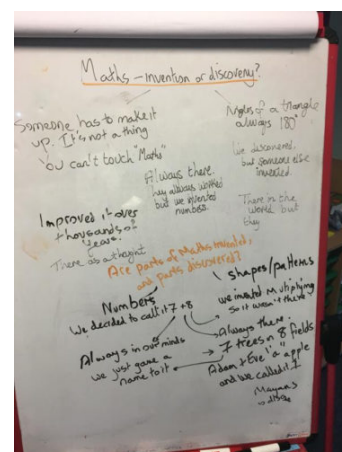 Maths - invention or discovery?
Someone has to make it
up. It's not a thing
You can't touch "Maths"
Angles of a triangle
always 180°
We discovered,
but someone else
invented.
Always there.
they always worked
but we invented
numbers.
There in the
world but
they
Improved it over
thousands of
years.
There as a
Are parts of Maths invented,
and parts discovered?
Numbers
We decided to call it 7 + 8
Always in our minds
we just gave a
name to it
shapes/patterns
we invented multiplying
so it wasn't there
Always there.
7 trees in 8 fields
Adam + Eve 'a' apple
and we called it 1
Mayans